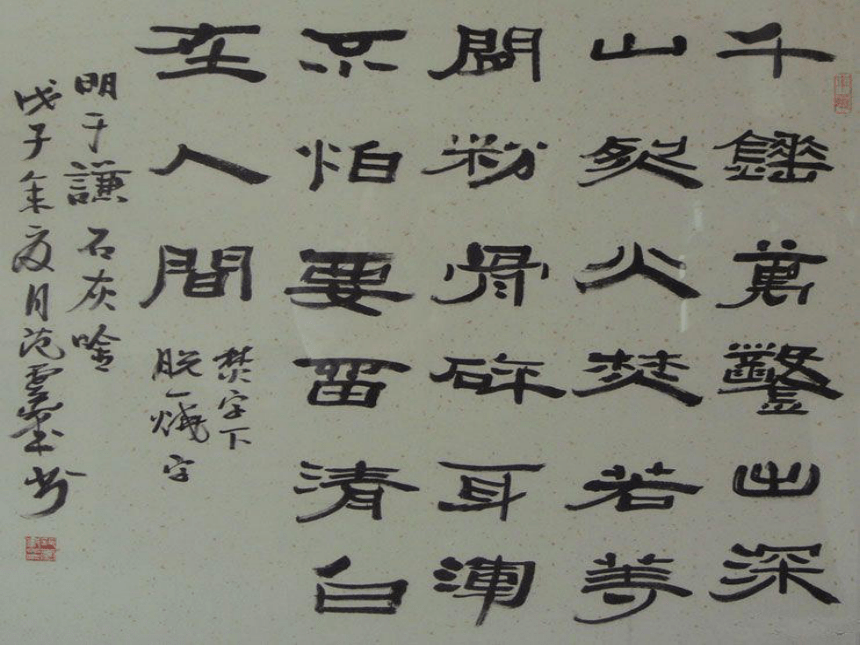 千錘萬鑿出深
山烈火焚若等
閒粉骨碎身渾
不怕要留清白
在人間
焚字下
脱一燒字
明于謙石灰吟
戊子年夏月范雲书